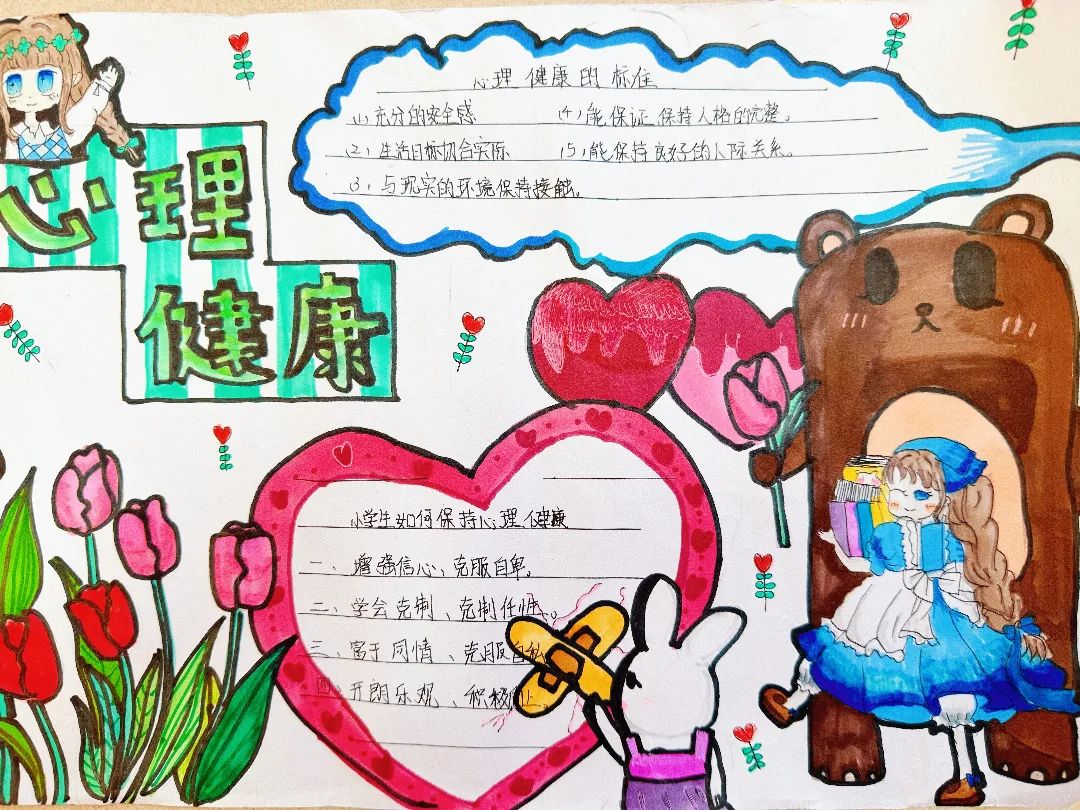 心理
健康
心理健康的标准
(1)充分的安全感 (4)能保证保持人格的完整。
(2)生活目标切合实际 (5)能保持良好的人际关系。
(3)与现实的环境保持接触。
小学生如何保持心理健康
一、增强信心、克服自卑。
二、学会克制、克制任性。
三、富于同情、克服自私
四、开朗乐观、积极向上